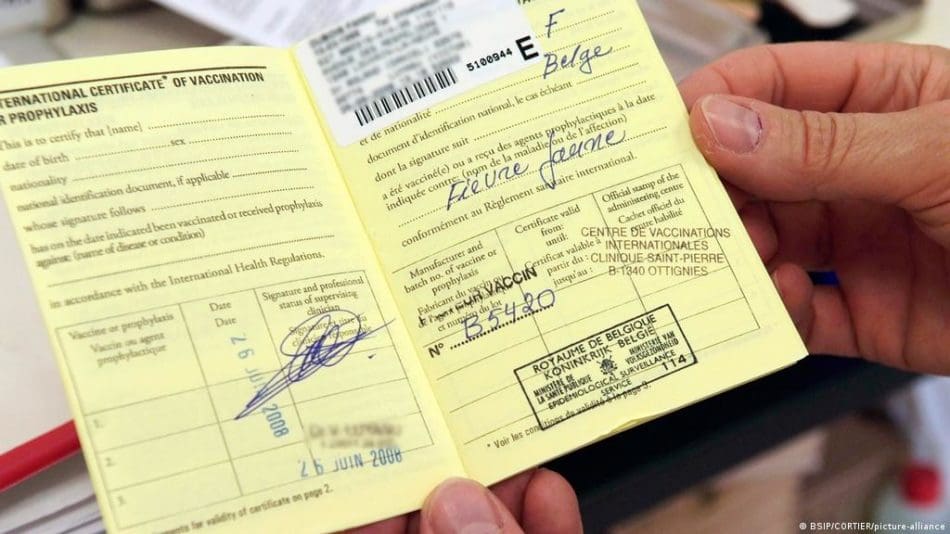 INTERNATIONAL CERTIFICATE* OF VACCINATION
OR PROPHYLAXIS
This is to certify that [name]
date of birth sex
nationality
national identification document, if applicable
whose signature follows
has on the date indicated been vaccinated or received prophylaxis
against: (name of disease or condition)
in accordance with the International Health Regulations.
Vaccine or prophylaxis
Vaccin ou agent
prophylactique
Date
Date
Signature and professional
status of supervising
clinician
29 JUIN 2008
1.
2.
3.
29 JUIN 2008
for validity of certificate on page 2.
5100944 E
F
et de nationalité Belge
document d'identification national, le cas échéant
dont la signature suit
a été vacciné(e) ou a reçu des agents prophylactiques à la date
indiquée contre: (nom de la maladie ou de l'affection)
Fièvre Jaune
conformément au Règlement sanitaire international.
Manufacturer and
batch no. of vaccine or
prophylaxis
Fabricant du vaccin ou
de l'agent prophylactique
et numéro du lot
Certificate valid
from:
until:
Certificat valable à
partir du :
jusqu'au :
Official stamp of the
administering centre
Cachet officiel du
centre habilité
CENTRE DE VACCINATIONS
INTERNATIONALES
CLINIQUE SAINT-PIERRE
B-1340 OTTIGNIES
VACCIN
N° B5420
ROYAUME DE BELGIQUE
KONINKRIJK BELGIË
MINISTÈRE DE
LA SANTÉ PUBLIQUE
MINISTERIE VAN
VOLKSGEZONDHEID
EPIDEMIOLOGICAL SURVEILLANCE
SERVICE 114
* Voir les conditions de validité à la page 3.
© BSIP/CORTIER/picture-alliance